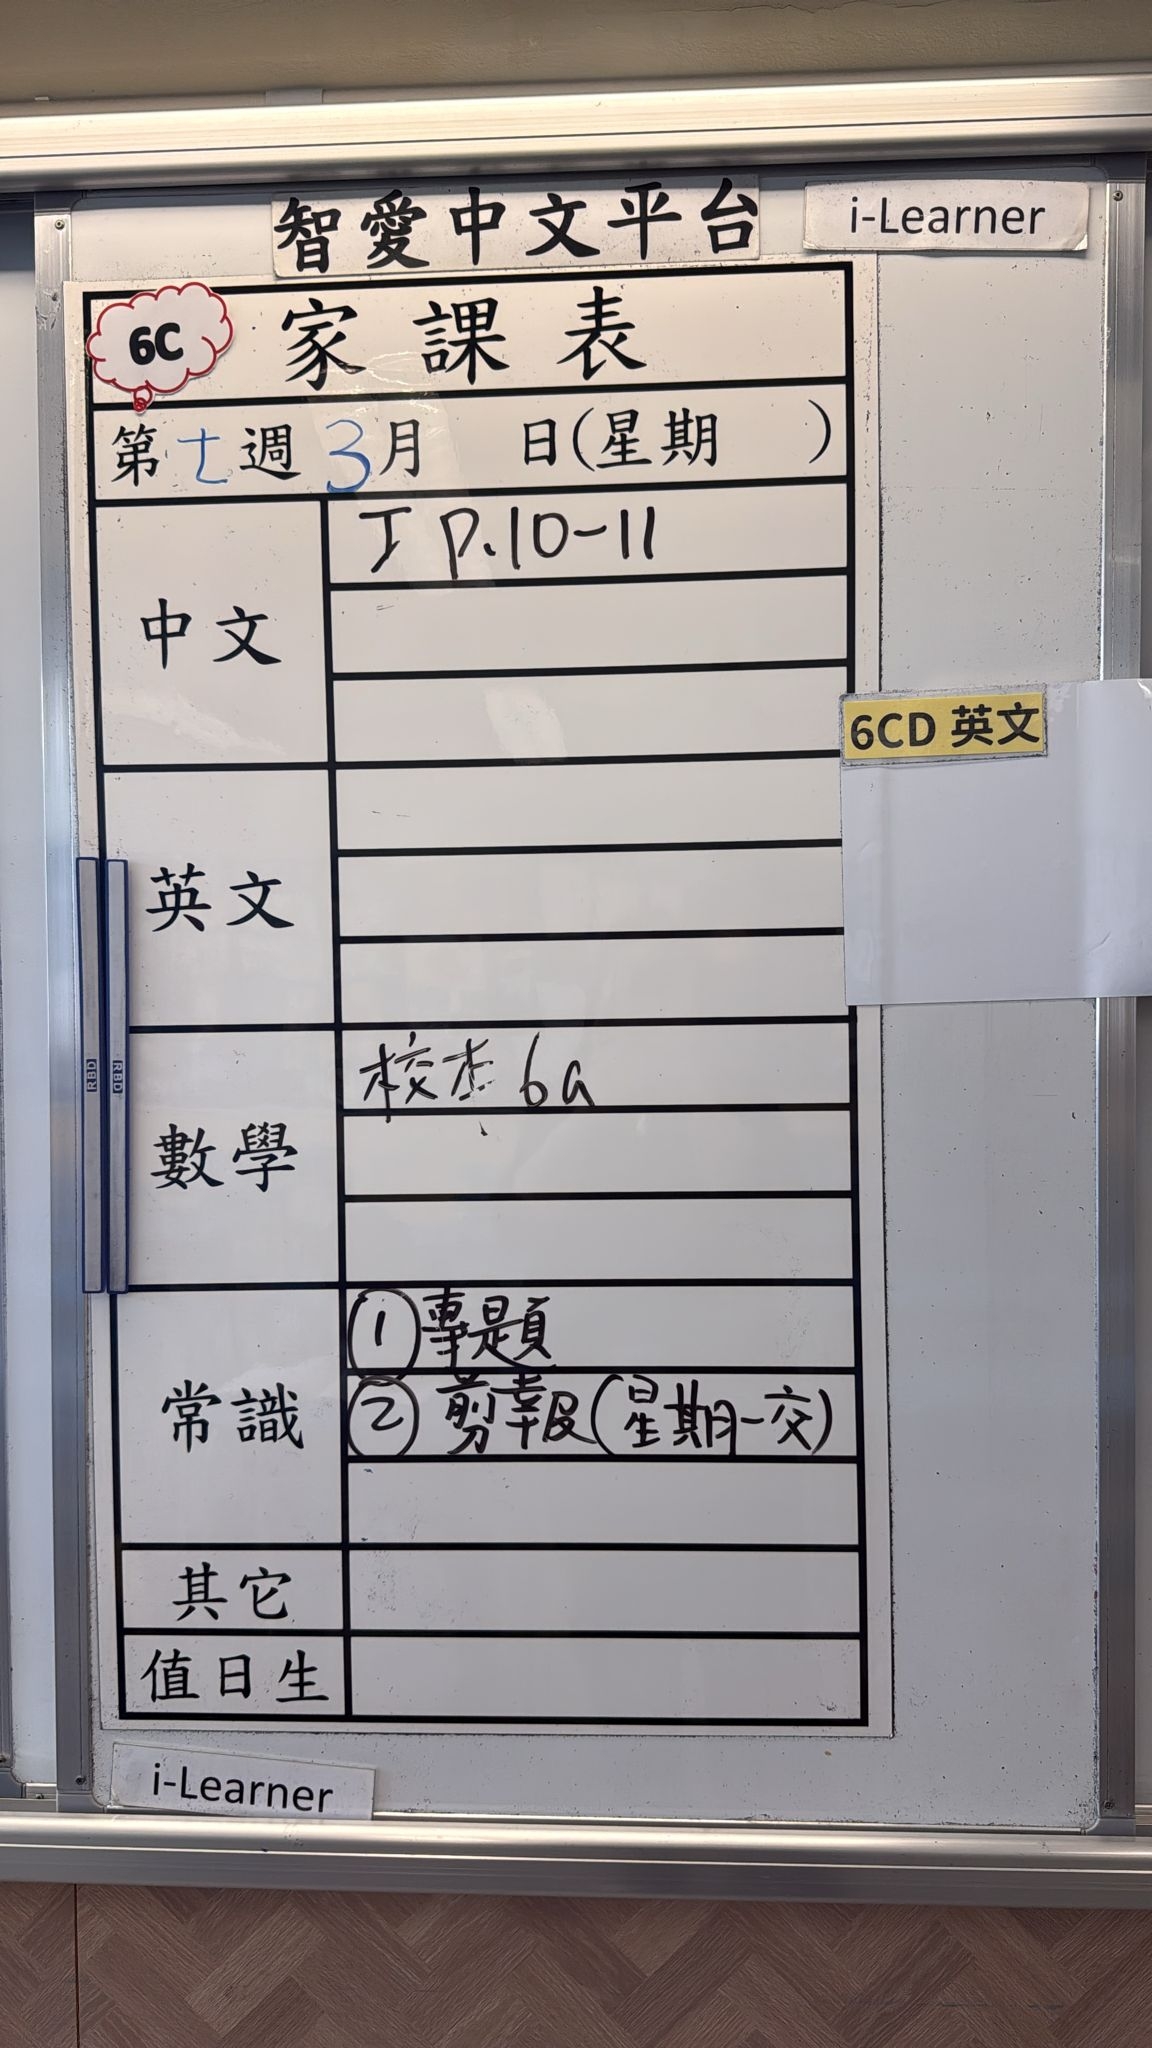 智愛中文平台
i-Learner
6C
家課表
第七週 3月 日(星期 )
中文
工 P.10-11
6CD 英文
英文
數學
校本 6a
常識
① 專題
② 剪報(星期一交)
其它
值日生
RBD
RBD
i-Learner